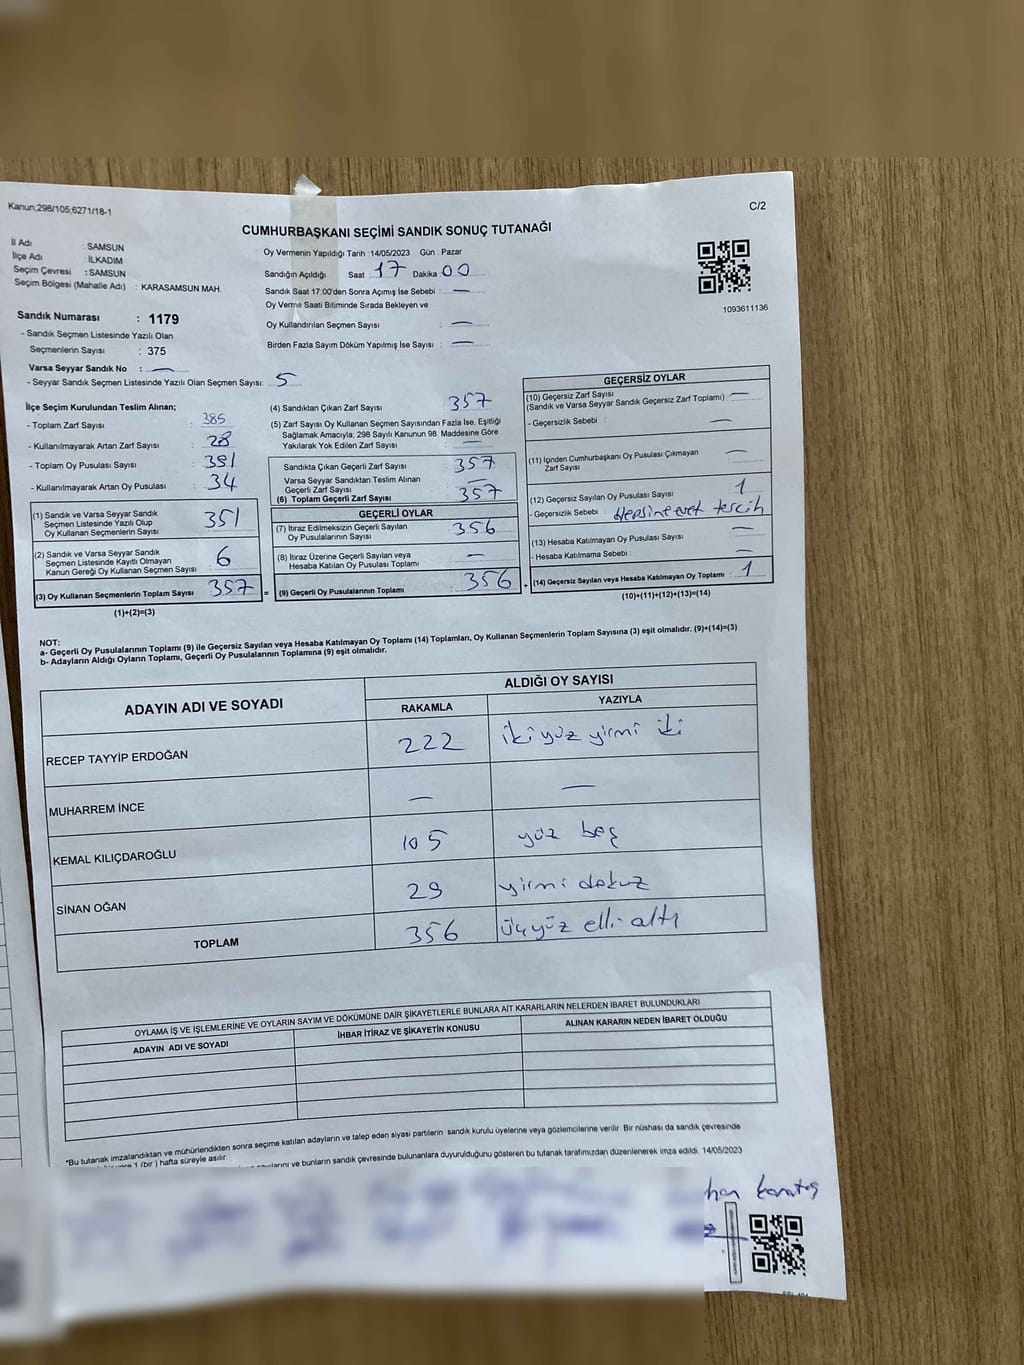 Kanun;298/105;6271/18-1
C/2
CUMHURBAŞKANI SEÇİMİ SANDIK SONUÇ TUTANAĞI
İl Adı : SAMSUN
İlçe Adı : İLKADIM
Seçim Çevresi : SAMSUN
Seçim Bölgesi (Mahalle Adı) : KARASAMSUN MAH.
Sandık Numarası : 1179
- Sandık Seçmen Listesinde Yazılı Olan
Seçmenlerin Sayısı : 375
Varsa Seyyar Sandık No : —
- Seyyar Sandık Seçmen Listesinde Yazılı Olan Seçmen Sayısı: 5
Oy Vermenin Yapıldığı Tarih :14/05/2023 Gün : Pazar
Sandığın Açıldığı Saat 17 Dakika 00
Sandık Saat 17:00'den Sonra Açımış İse Sebebi : —
Oy Verme Saati Bitiminde Sırada Bekleyen ve
Oy Kullandırılan Seçmen Sayısı : —
Birden Fazla Sayım Döküm Yapılmış İse Sayısı : —
1093611136
İlçe Seçim Kurulundan Teslim Alınan;
- Toplam Zarf Sayısı : 385
- Kullanılmayarak Artan Zarf Sayısı : 28
- Toplam Oy Pusulası Sayısı : 391
- Kullanılmayarak Artan Oy Pusulası : 34
(1) Sandık ve Varsa Seyyar Sandık
Seçmen Listesinde Yazılı Olup
Oy Kullanan Seçmenlerin Sayısı 351
(2) Sandık ve Varsa Seyyar Sandık
Seçmen Listesinde Kayıtlı Olmayan
Kanun Gereği Oy Kullanan Seçmen Sayısı 6
(3) Oy Kullanan Seçmenlerin Toplam Sayısı 357
(1)+(2)=(3)
(4) Sandıktan Çıkan Zarf Sayısı : 357
(5) Zarf Sayısı Oy Kullanan Seçmen Sayısından Fazla İse, Eşitliği
Sağlamak Amacıyla; 298 Sayılı Kanunun 98. Maddesine Göre
Yakılarak Yok Edilen Zarf Sayısı : —
Sandıkta Çıkan Geçerli Zarf Sayısı : 357
Varsa Seyyar Sandıktan Teslim Alınan
Geçerli Zarf Sayısı : —
(6) Toplam Geçerli Zarf Sayısı : 357
GEÇERLİ OYLAR
(7) İtiraz Edilmeksizin Geçerli Sayılan
Oy Pusulalarının Sayısı : 356
(8) İtiraz Üzerine Geçerli Sayılan veya
Hesaba Katılan Oy Pusulası Toplamı : —
= (9) Geçerli Oy Pusulalarının Toplamı : 356 +
GEÇERSİZ OYLAR
(10) Geçersiz Zarf Sayısı : —
(Sandık ve Varsa Seyyar Sandık Geçersiz Zarf Toplamı)
- Geçersizlik Sebebi : —
(11) İçinden Cumhurbaşkanı Oy Pusulası Çıkmayan
Zarf Sayısı : —
(12) Geçersiz Sayılan Oy Pusulası Sayısı : 1
- Geçersizlik Sebebi : Hepsine evet tercih
(13) Hesaba Katılmayan Oy Pusulası Sayısı : —
- Hesaba Katılmama Sebebi : —
(14) Geçersiz Sayılan veya Hesaba Katılmayan Oy Toplamı : 1
(10)+(11)+(12)+(13)=(14)
NOT:
a- Geçerli Oy Pusulalarının Toplamı (9) ile Geçersiz Sayılan veya Hesaba Katılmayan Oy Toplamı (14) Toplamları, Oy Kullanan Seçmenlerin Toplam Sayısına (3) eşit olmalıdır. (9)+(14)=(3)
b- Adayların Aldığı Oyların Toplamı, Geçerli Oy Pusulalarının Toplamına (9) eşit olmalıdır.
ADAYIN ADI VE SOYADI
ALDIĞI OY SAYISI
RAKAMLA YAZIYLA
RECEP TAYYİP ERDOĞAN 222 iki yüz yirmi iki
MUHARREM İNCE — —
KEMAL KILIÇDAROĞLU 105 yüz beş
SİNAN OĞAN 29 yirmi dokuz
TOPLAM 356 üçyüz elli altı
OYLAMA İŞ VE İŞLEMLERİNE VE OYLARIN SAYIM VE DÖKÜMÜNE DAİR ŞİKAYETLERLE BUNLARA AİT KARARLARIN NELERDEN İBARET BULUNDUKLARI
ADAYIN ADI VE SOYADI İHBAR İTİRAZ VE ŞİKAYETİN KONUSU ALINAN KARARIN NEDEN İBARET OLDUĞU
*Bu tutanak imzalandıktan ve mühürlendikten sonra seçime katılan adayların ve talep eden siyasi partilerin sandık kurulu üyelerine veya gözlemcilerine verilir. Bir nüshası da sandık çevresinde
1 (bir) hafta süreyle asılır.
ve bunların sandık çevresinde bulunanlara duyurulduğunu gösteren bu tutanak tarafımızdan düzenlenerek imza edildi. 14/05/2023